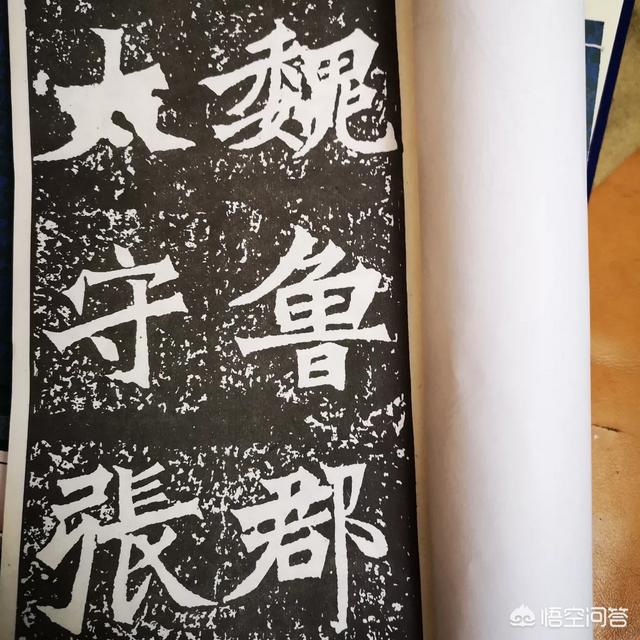 魏魯郡
太守張
悟空问答